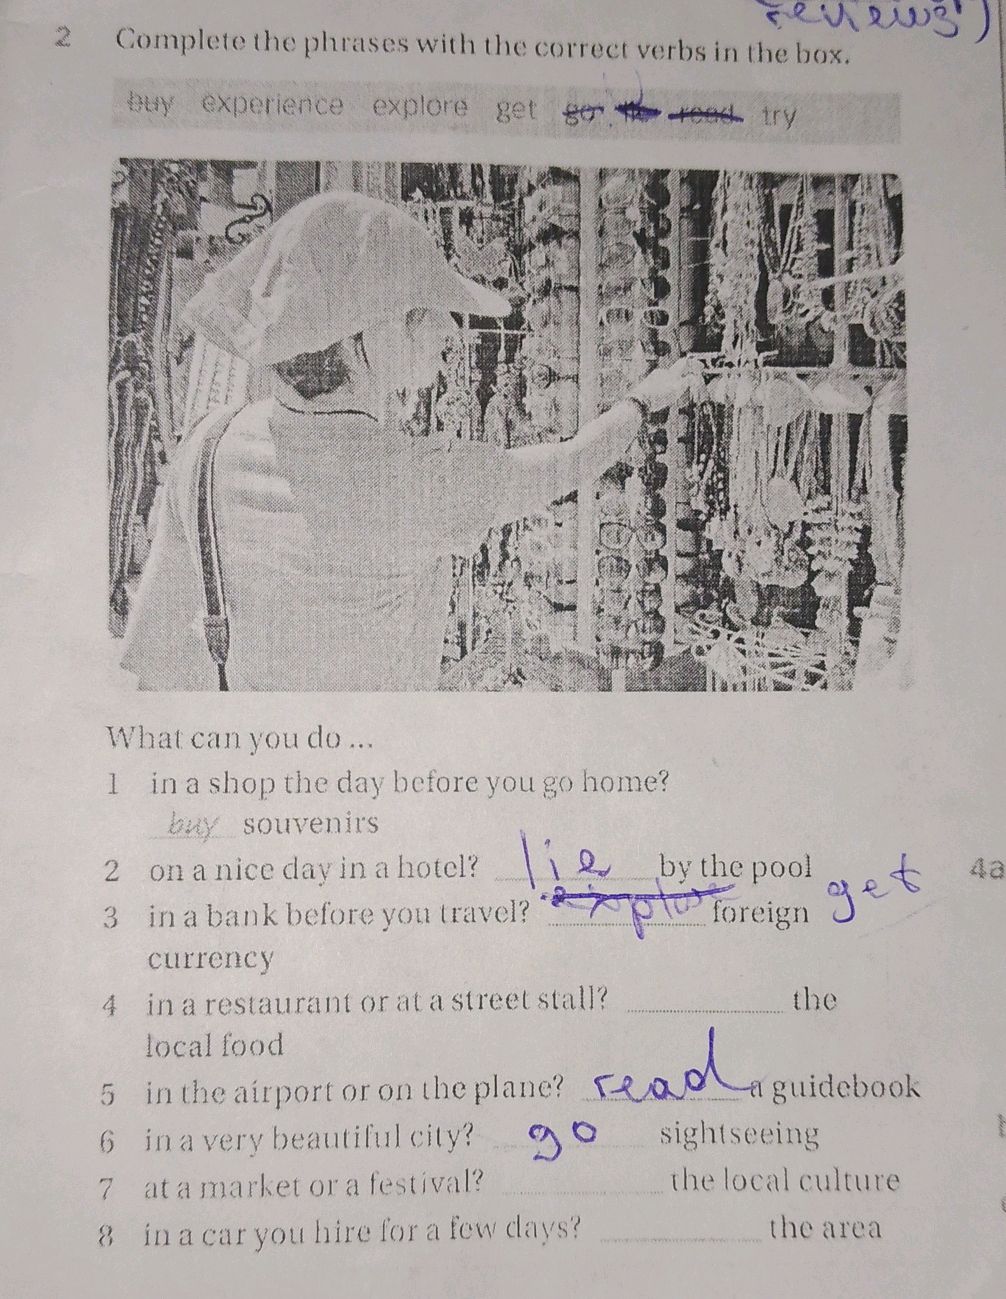 reviews)
2 Complete the phrases with the correct verbs in the box.
buy experience explore get go lie read try
What can you do ...
1 in a shop the day before you go home?
buy souvenirs
2 on a nice day in a hotel? lie by the pool
3 in a bank before you travel? explore foreign get
currency
4 in a restaurant or at a street stall? the
local food
5 in the airport or on the plane? read a guidebook
6 in a very beautiful city? go sightseeing
7 at a market or a festival? the local culture
8 in a car you hire for a few days? the area
4a